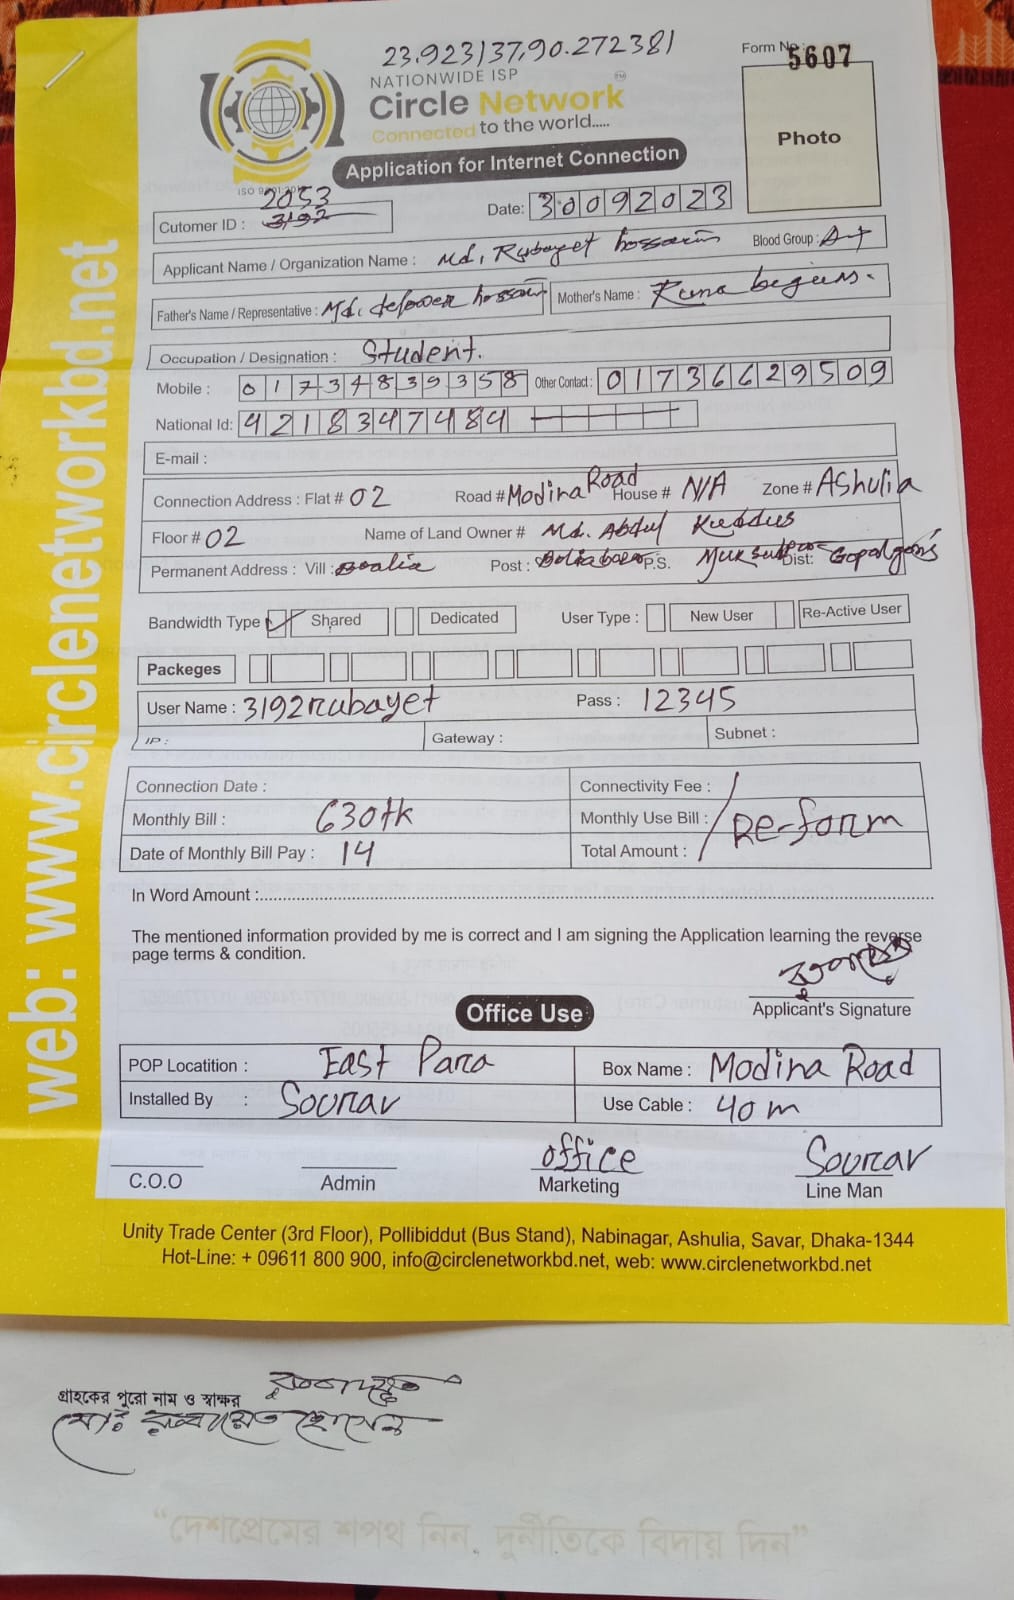 23.923137,90.272381
Form No : 5607
NATIONWIDE ISP
Circle Network
Connected to the world.....
Photo
Application for Internet Connection
2053
Cutomer ID : 3192
Date: 30092023
Applicant Name / Organization Name : Md. Rubayet hossain Blood Group : A+
Father's Name / Representative : Md. delower hossain Mother's Name : Runa begum.
Occupation / Designation : Student.
Mobile : 01734839358 Other Contact : 01736629509
National Id: 4218347484
E-mail :
Connection Address : Flat # 02 Road # Modina Road House # N/A Zone # Ashulia
Floor # 02 Name of Land Owner # Md. Abdul Kuddus
Permanent Address : Vill : Post : P.S. Muksudpur Dist: Gopalganj
Bandwidth Type Shared Dedicated User Type : New User Re-Active User
Packeges
User Name : 3192rubayet Pass : 12345
IP : Gateway : Subnet :
Connection Date : Connectivity Fee :
Monthly Bill : 630tk Monthly Use Bill : Re-form
Date of Monthly Bill Pay : 14 Total Amount :
In Word Amount :
The mentioned information provided by me is correct and I am signing the Application learning the reverse
page terms & condition.
Applicant's Signature
Office Use
POP Locatition : East Para Box Name : Modina Road
Installed By : Sourav Use Cable : 40 m
office Sourav
C.O.O Admin Marketing Line Man
Unity Trade Center (3rd Floor), Pollibiddut (Bus Stand), Nabinagar, Ashulia, Savar, Dhaka-1344
Hot-Line: + 09611 800 900, info@circlenetworkbd.net, web: www.circlenetworkbd.net
web: www.circlenetworkbd.net
গ্রাহকের পুরো নাম ও স্বাক্ষর
মোঃ রুবায়েত হোসেন
“দেশপ্রেমের শপথ নিন, দুর্নীতিকে বিদায় দিন”